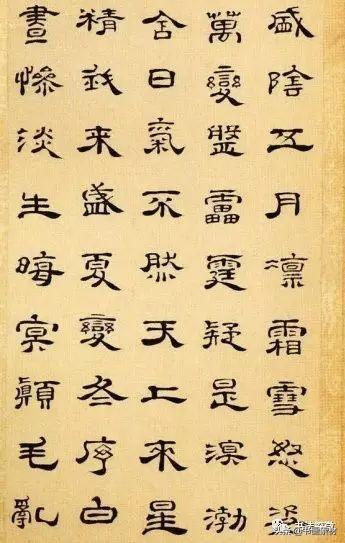 盛陰五月凛霜雪怒
萬變盤靁霆疑是溟渤
含日氣不然天上來星
精我来盛夏變冬序白
晝慘淡生晦冥顛毛亂